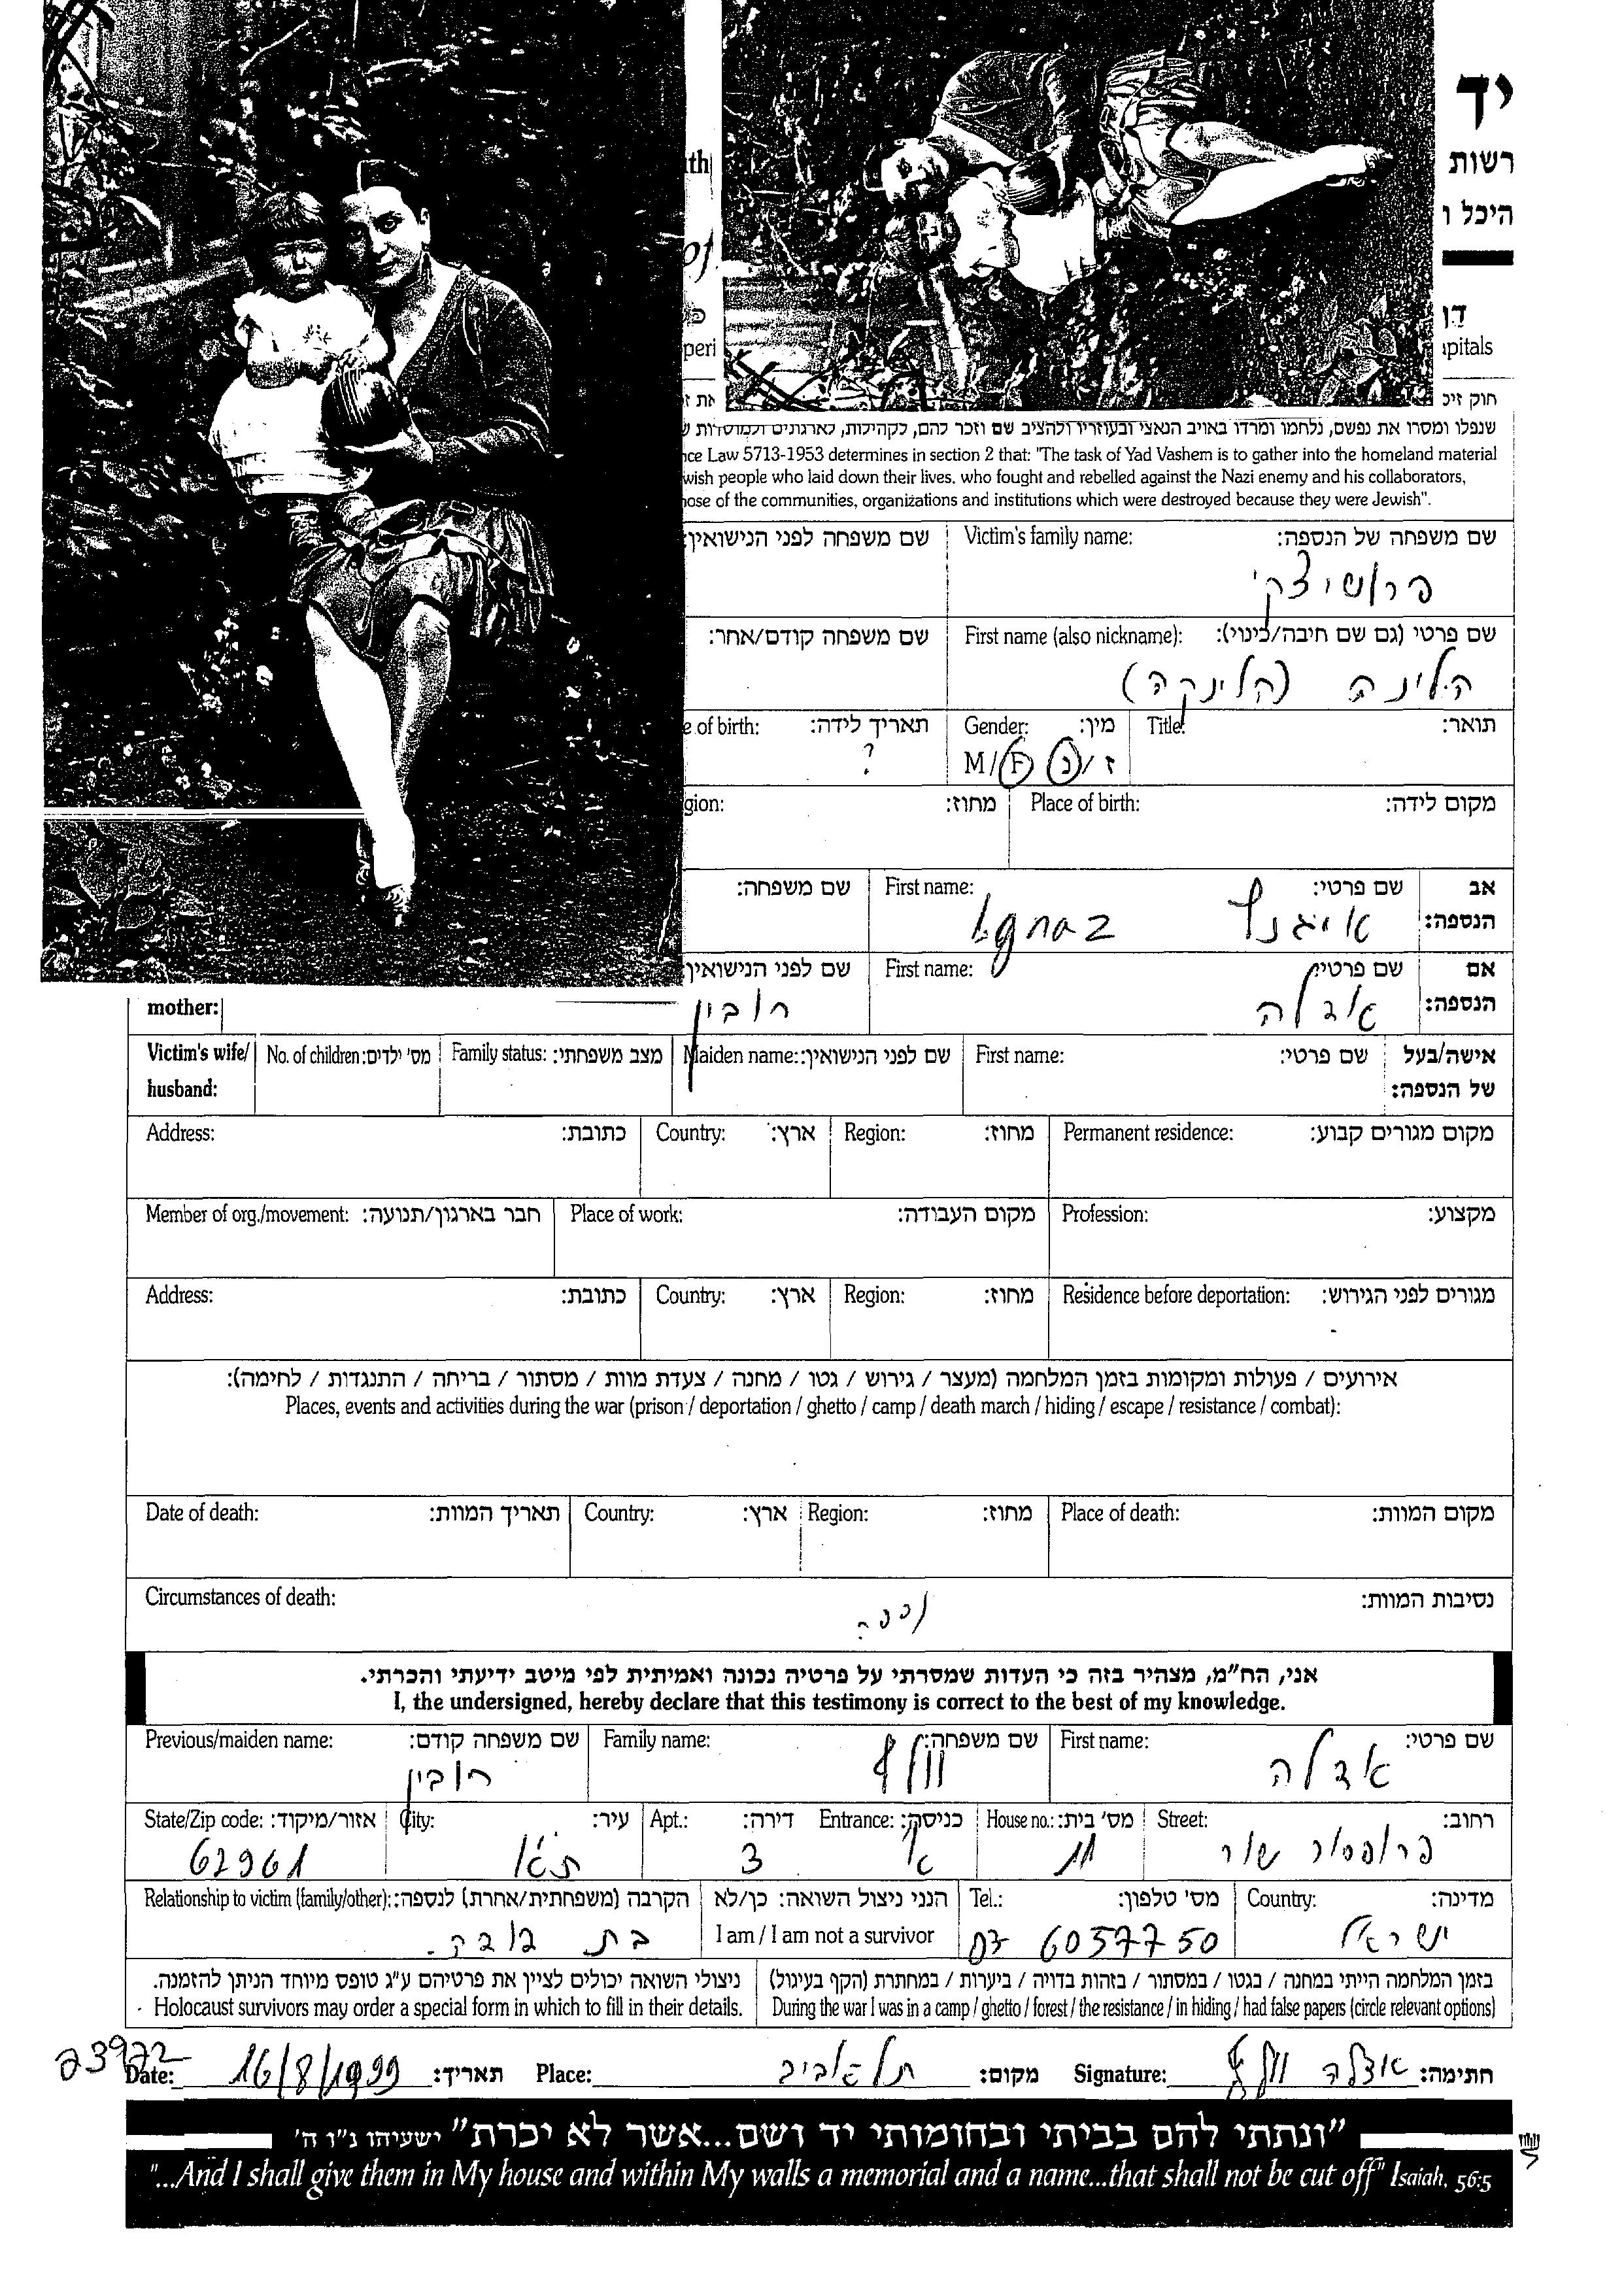 יד
רשות
היכל ו
apitals
שנפלו ומסרו את נפשם, נלחמו ומרדו באויב הנאצי ובעוזריו ולהציב שם וזכר להם, לקהילות, לארגונים ולמוסדות
nce Law 5713-1953 determines in section 2 that: "The task of Yad Vashem is to gather into the homeland material
wish people who laid down their lives, who fought and rebelled against the Nazi enemy and his collaborators,
hose of the communities, organizations and institutions which were destroyed because they were Jewish".
שם משפחה של הנספה: Victim's family name: שם משפחה לפני הנישואין:
פרושיצקי
שם פרטי (גם שם חיבה/כינוי): First name (also nickname): שם משפחה קודם/אחר:
הלינה (הלינקה)
תואר: Title: מין: Gender: תאריך לידה: e of birth:
ז/נ M/F ?
מקום לידה: Place of birth: מחוז: gion:
אב שם פרטי: First name: שם משפחה:
הנספה: איגנץ Ignaz
אם שם פרטי: First name: שם לפני הנישואין:
הנספה: אדלה רובין mother:
אישה/בעל שם פרטי: First name: שם לפני הנישואין: Maiden name: מצב משפחתי: Family status: מס' ילדים: No. of children: Victim's wife/
של הנספה: husband:
מקום מגורים קבוע: Permanent residence: מחוז: Region: ארץ: Country: כתובת: Address:
מקצוע: Profession: מקום העבודה: Place of work: חבר בארגון/תנועה: Member of org./movement:
מגורים לפני הגירוש: Residence before deportation: מחוז: Region: ארץ: Country: כתובת: Address:
אירועים / פעולות ומקומות בזמן המלחמה (מעצר / גירוש / גטו / מחנה / צעדת מוות / מסתור / בריחה / התנגדות / לחימה):
Places, events and activities during the war (prison / deportation / ghetto / camp / death march / hiding / escape / resistance / combat):
מקום המוות: Place of death: מחוז: Region: ארץ: Country: תאריך המוות: Date of death:
נסיבות המוות: Circumstances of death:
אני, הח"מ, מצהיר בזה כי העדות שמסרתי על פרטיה נכונה ואמיתית לפי מיטב ידיעתי והכרתי.
I, the undersigned, hereby declare that this testimony is correct to the best of my knowledge.
שם פרטי: First name: שם משפחה: Family name: שם משפחה קודם: Previous/maiden name:
אדלה וולף רובין
רחוב: Street: מס' בית: House no.: כניסה: Entrance: דירה: Apt.: עיר: City: אזור/מיקוד: State/Zip code:
פרופסור שור 11 א 3 ת"א 62961
מדינה: Country: מס' טלפון: Tel.: הנני ניצול השואה: כן/לא הקרבה (משפחתית/אחרת) לנספה: Relationship to victim (family/other):
ישראל 03 6057750 I am / I am not a survivor בת דודה.
בזמן המלחמה הייתי במחנה / בגטו / במסתור / בזהות בדויה / ביערות / במחתרת (הקף בעיגול) ניצולי השואה יכולים לציין את פרטיהם ע"ג טופס מיוחד הניתן להזמנה.
During the war I was in a camp / ghetto / forest / the resistance / in hiding / had false papers (circle relevant options) Holocaust survivors may order a special form in which to fill in their details.
חתימה: אדלה וולף Signature: מקום: תל אביב Place: תאריך: 16/8/1999 Date:
"ונתתי להם בביתי ובחומותי יד ושם...אשר לא יכרת" ישעיהו נ"ו ה'
"...And I shall give them in My house and within My walls a memorial and a name...that shall not be cut off" Isaiah, 56:5